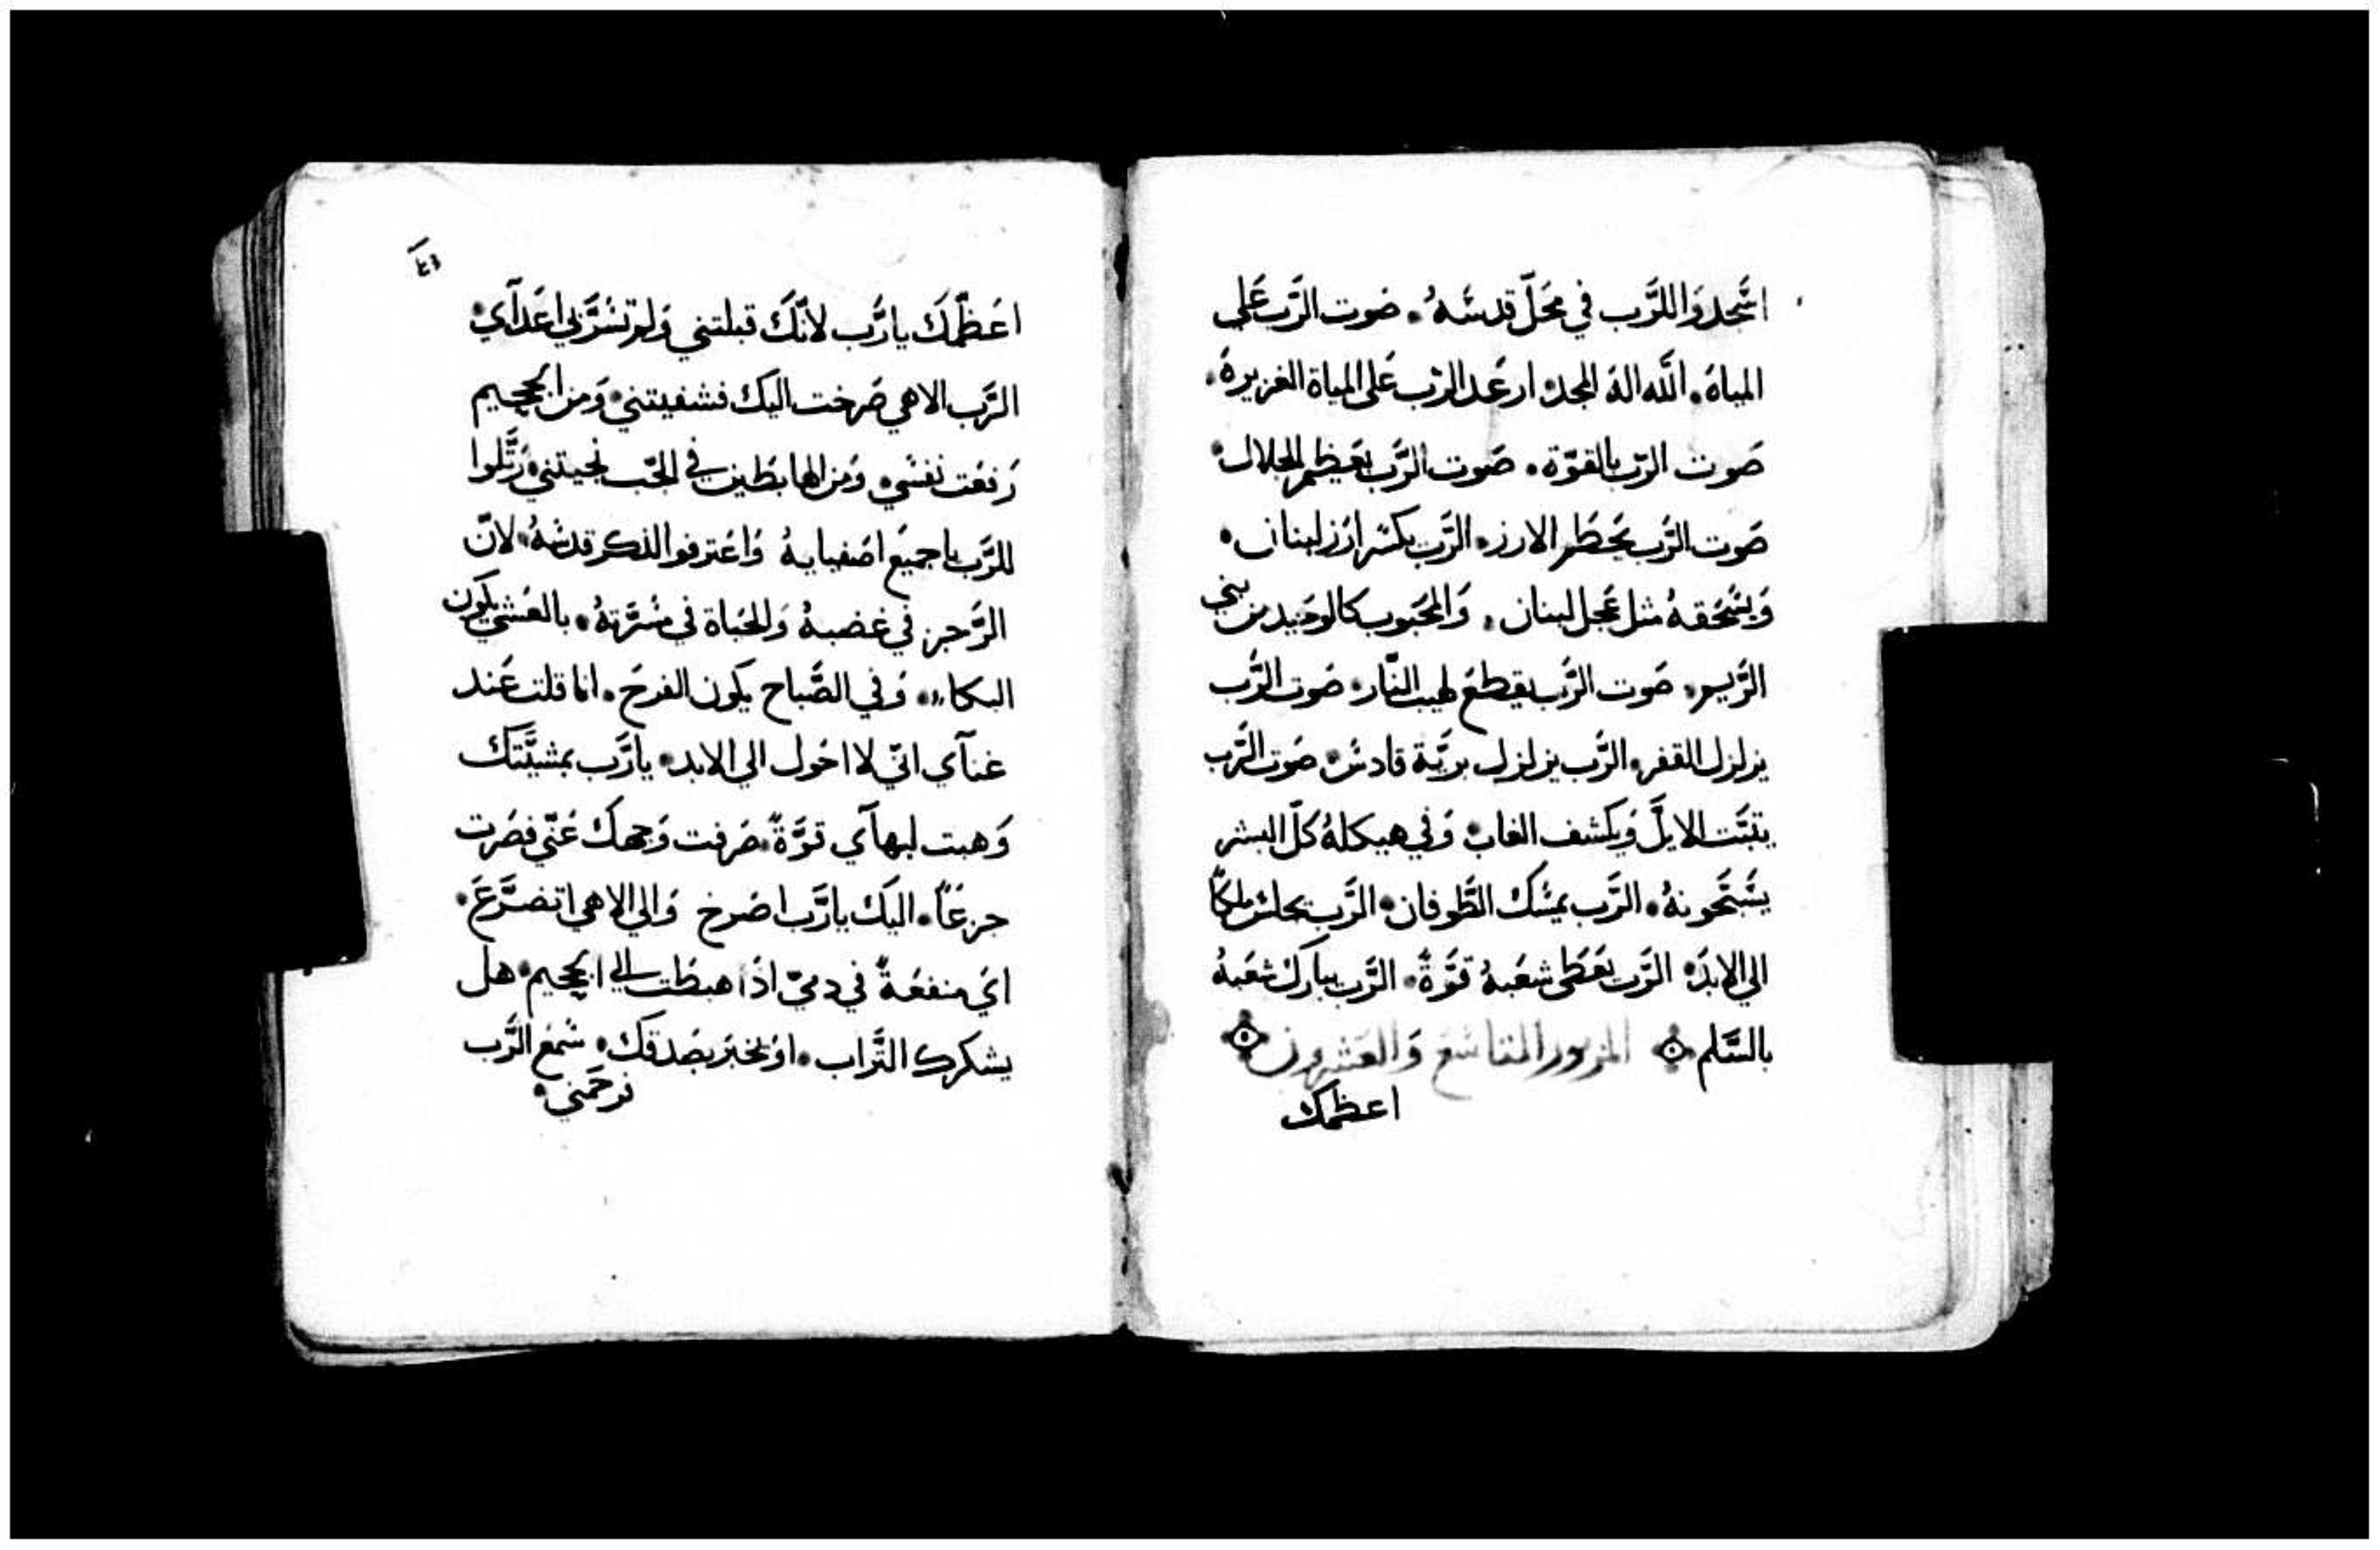 اسَّجدوَا للرَّب في محَلّ قدسَهُ. صَوت الرَّب عَلي
المياة. اللَّه الهَ المجد. ارعَد الرَّب عَلي المياة الغزيرة.
صَوت الرّب بالقوّة. صَوت الرَّب بعَظيم الجلال.
صَوت الرَّب يحَطم الارز. الرَّب يكسّر ارَز لبنان.
وَيسَّحَقهُ مثل عَجل لبنان. وَالمحَبوب كالوحَيد من بني
الرَّيم. صَوت الرَّب يقطعَ لهيب النّار. صَوت الرَّب
يزلزل القفر. الرَّب يزلزل بريَّة قادسَ. صَوت الرَّب
يثبَّت الايلَّ وَيكشف الغاب. وَفي هيكلهُ كلّ البشر
يسَّبَّحَونهُ. الرَّب يمسَك الطَّوفان. الرَّب يجلسَ ملكاً
الي الابدَ. الرَّب يعَطَي شعَبهُ قوَّةً. الرَّب يبارك شعَبهُ
بالسَّلم. المزمور التاسَعَ وَالعَشرون
اعظمك
٤١
اعَظّمَكَ يا رَّب لانَّكَ قبلتني وَلم تسَرَّ بي اعَدآي.
الرَّب الاهي صَرخت اليَك فشفيتني. وَمن الجحيم
رَفعَت نفسَي. وَمن الهابطَين في الجَّب نجيتني. رَتَّلوا
للرَّب يا جميعَ اصَفيايهُ وَاعَترفوا لذكر قدسَهُ. لانّ
الرَّجز في غضبهُ وَالحَياة في مسَرَّتهُ. بالعَشي يكَون
البكاء. وَفي الصَّباح يكون الفرحَ. انا قلت عَند
غنآي انّي لا احَول الي الابد. يا رَّب بمشيَّتَك
وَهبت لبهآي قوَّةً. صَرفت وَجهك عَنّي فصَرت
جزعَاً. اليَك يا رَّب اصَرخ وَالي الاهي اتضرَّعَ.
ايَ منفعَةً في دميّ اذَا هبطَت الي الجحيم. هل
يشكرك التَّراب. اوَ يخبَر بصَدقكَ. سَمعَ الرَّب
فرحَمني.